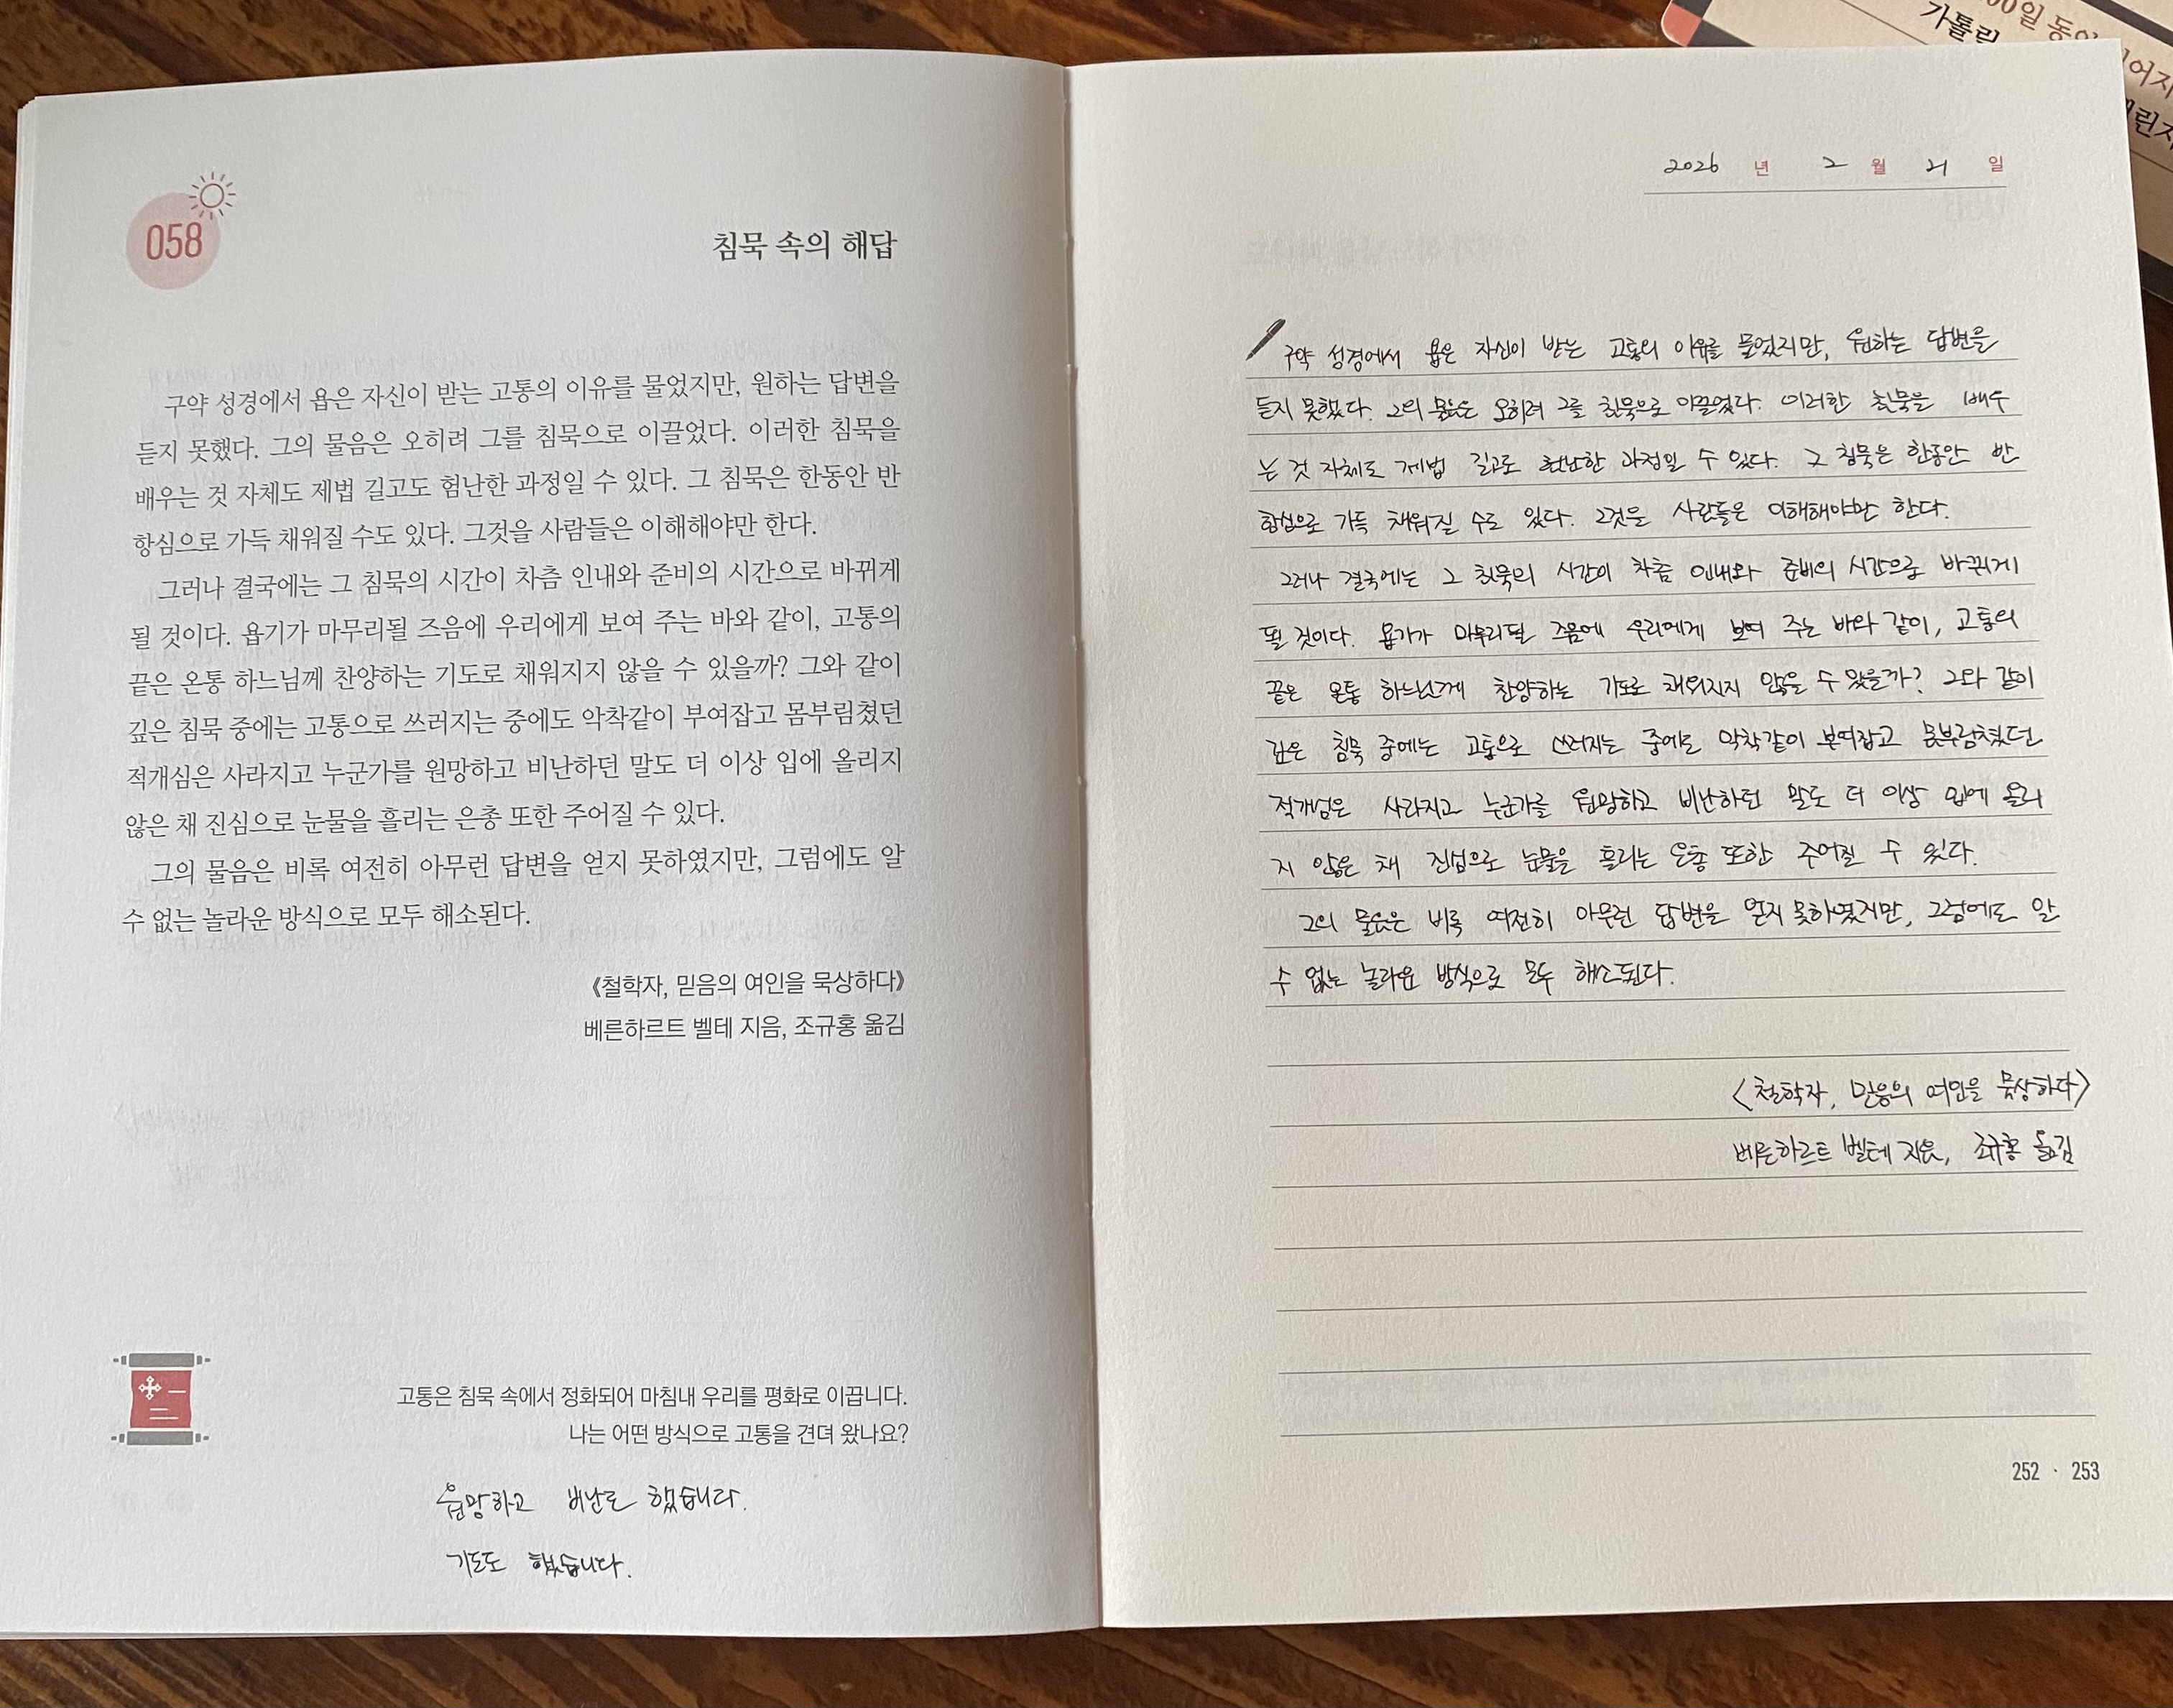 058
침묵 속의 해답
구약 성경에서 욥은 자신이 받는 고통의 이유를 물었지만, 원하는 답변을
듣지 못했다. 그의 물음은 오히려 그를 침묵으로 이끌었다. 이러한 침묵을
배우는 것 자체도 제법 길고도 험난한 과정일 수 있다. 그 침묵은 한동안 반
항심으로 가득 채워질 수도 있다. 그것을 사람들은 이해해야만 한다.
그러나 결국에는 그 침묵의 시간이 차츰 인내와 준비의 시간으로 바뀌게
될 것이다. 욥기가 마무리될 즈음에 우리에게 보여 주는 바와 같이, 고통의
끝은 온통 하느님께 찬양하는 기도로 채워지지 않을 수 있을까? 그와 같이
깊은 침묵 중에는 고통으로 쓰러지는 중에도 악착같이 부여잡고 몸부림쳤던
적개심은 사라지고 누군가를 원망하고 비난하던 말도 더 이상 입에 올리지
않은 채 진심으로 눈물을 흘리는 은총 또한 주어질 수 있다.
그의 물음은 비록 여전히 아무런 답변을 얻지 못하였지만, 그럼에도 알
수 없는 놀라운 방식으로 모두 해소된다.
《철학자, 믿음의 여인을 묵상하다》
베른하르트 벨테 지음, 조규홍 옮김
고통은 침묵 속에서 정화되어 마침내 우리를 평화로 이끕니다.
나는 어떤 방식으로 고통을 견뎌 왔나요?
원망하고 비난도 했습니다.
기도도 했습니다.
2026 년 2 월 21 일
구약 성경에서 욥은 자신이 받는 고통의 이유를 물었지만, 원하는 답변을
듣지 못했다. 그의 물음은 오히려 그를 침묵으로 이끌었다. 이러한 침묵을 배우
는 것 자체도 제법 길고도 험난한 과정일 수 있다. 그 침묵은 한동안 반
항심으로 가득 채워질 수도 있다. 그것을 사람들은 이해해야만 한다.
그러나 결국에는 그 침묵의 시간이 차츰 인내와 준비의 시간으로 바뀌게
될 것이다. 욥기가 마무리될 즈음에 우리에게 보여 주는 바와 같이, 고통의
끝은 온통 하느님께 찬양하는 기도로 채워지지 않을 수 있을까? 그와 같이
깊은 침묵 중에는 고통으로 쓰러지는 중에도 악착같이 본여잡고 몸부림쳤던
적개심은 사라지고 누군가를 원망하고 비난하던 말도 더 이상 입에 올리
지 않은 채 진심으로 눈물을 흘리는 은총 또한 주어질 수 있다.
그의 물음은 비록 여전히 아무런 답변을 얻지 못하였지만, 그럼에도 알
수 없는 놀라운 방식으로 모두 해소된다.
〈철학자, 믿음의 여인을 묵상하다〉
베른하르트 벨테 지음, 조규홍 옮김
252 · 253
가톨릭